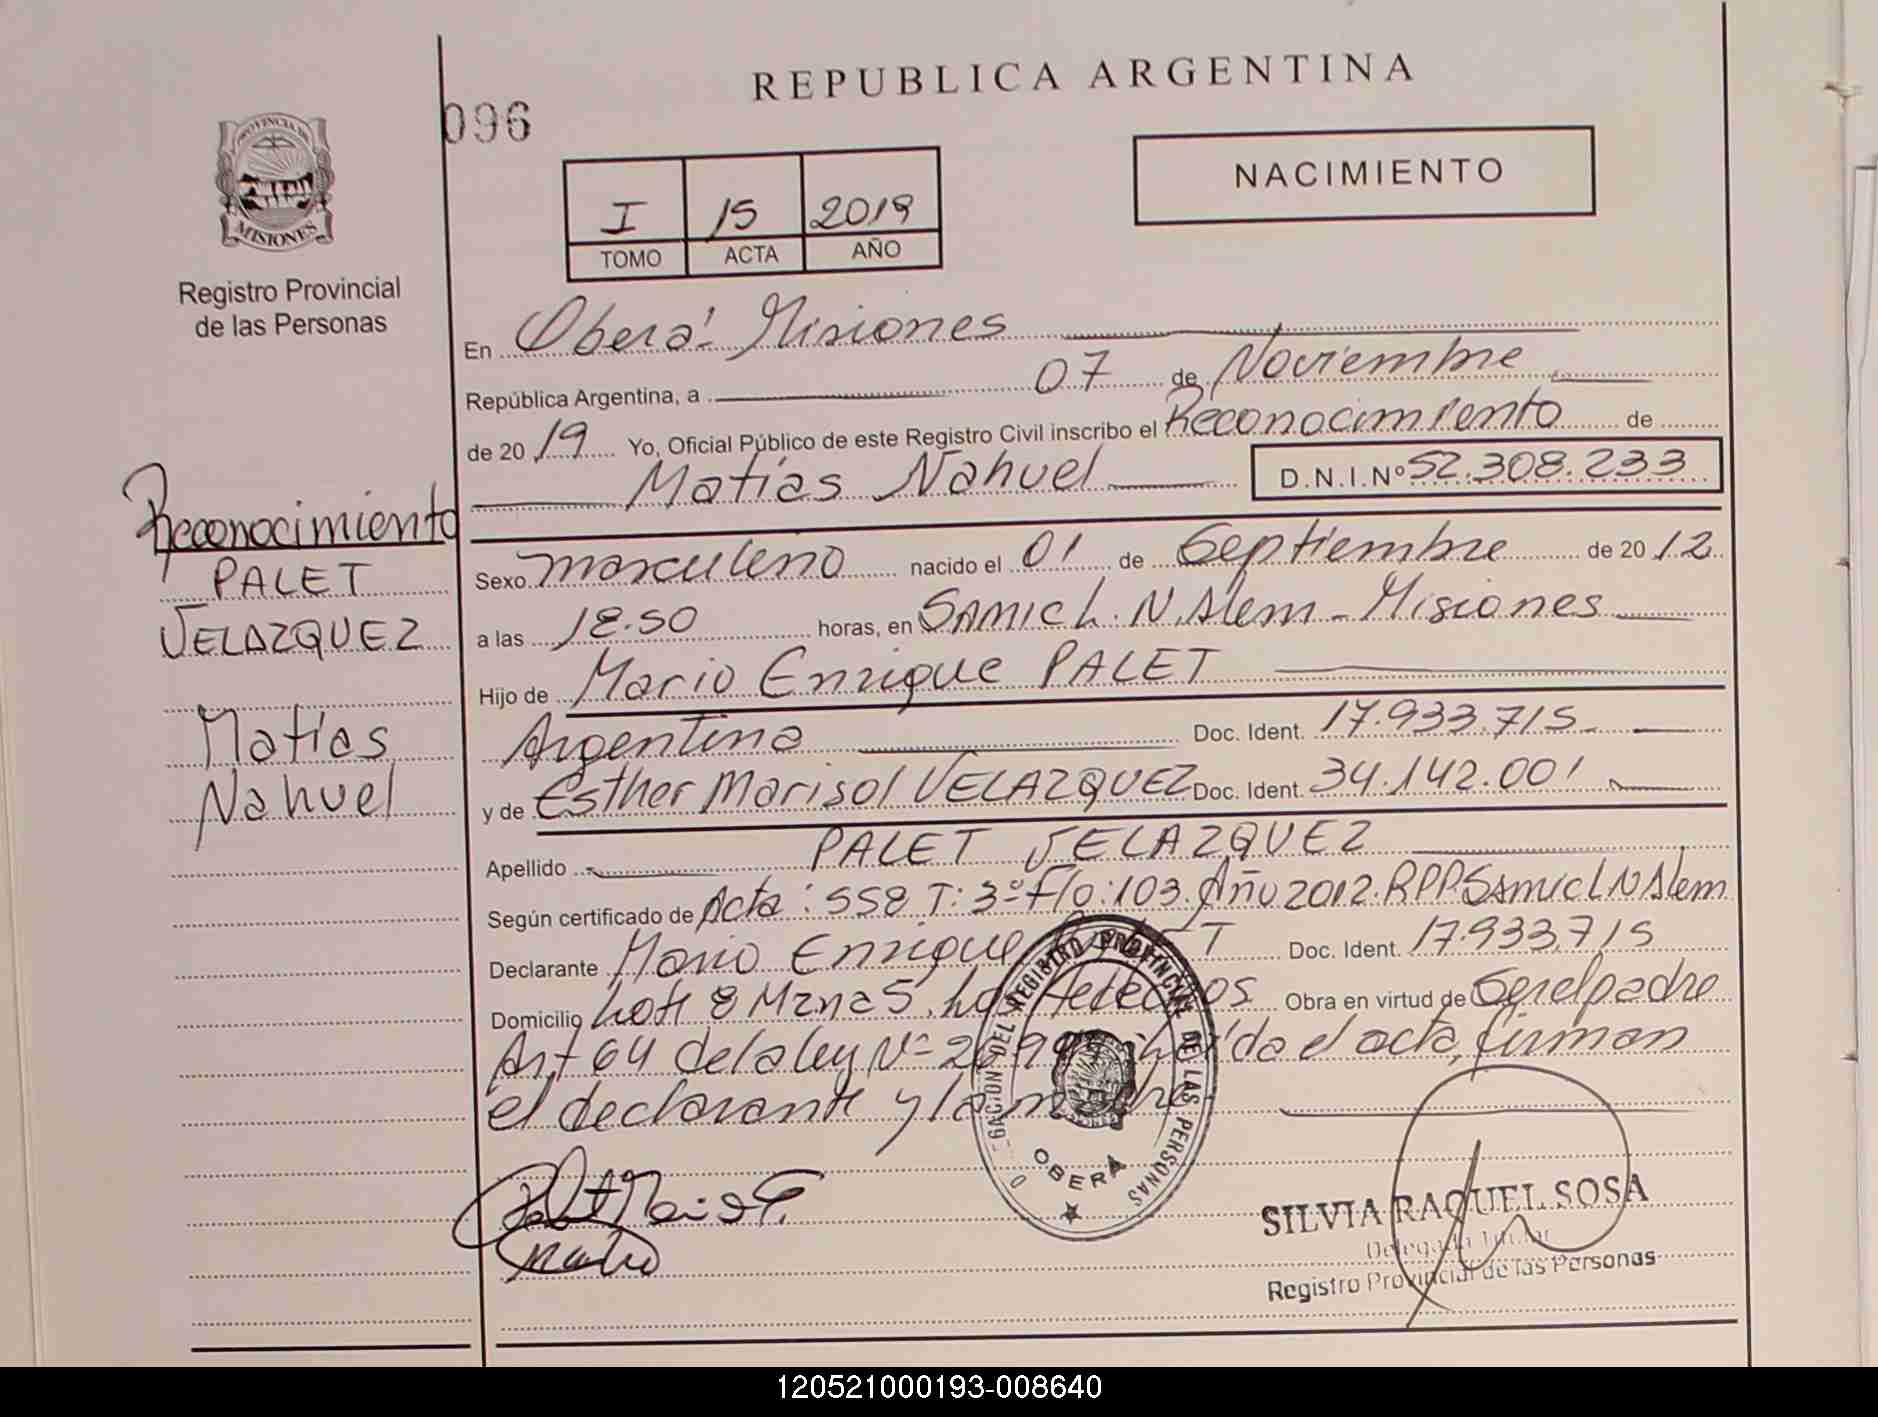 REPUBLICA ARGENTINA
096
PROVINCIA DE
MISIONES
Registro Provincial
de las Personas
NACIMIENTO
I 15 2019
TOMO ACTA AÑO
En Oberá - Misiones
República Argentina, a 07 de Noviembre
de 2019 Yo, Oficial Público de este Registro Civil inscribo el Reconocimiento de
Matías Nahuel D.N.I.Nº 52.308.233
Reconocimiento
PALET
VELAZQUEZ
Matías
Nahuel
Sexo masculino nacido el 01 de Septiembre de 2012
a las 18.50 horas, en SAMIC L.N.Alem - Misiones
Hijo de Mario Enrique PALET
Argentina Doc. Ident. 17.933.715
y de Esther Marisol VELAZQUEZ Doc. Ident. 34.142.001
Apellido PALET VELAZQUEZ
Según certificado de Acta: 558 T: 3º Fº: 103. Año 2012. RPP. Samic L N Alem
Declarante Mario Enrique Doc. Ident. 17.933.715
Domicilio Lote 8 Mzna 5, Obra en virtud de Ser el padre
Art 64 de la ley Nº el acta, firman
el declarante y la madre
DEL REGISTRO PROVINCIAL DE LAS PERSONAS
OBERA
Palet Mario E.
SILVIA RAQUEL SOSA
Delegada Titular
Registro Provincial de las Personas
120521000193-008640